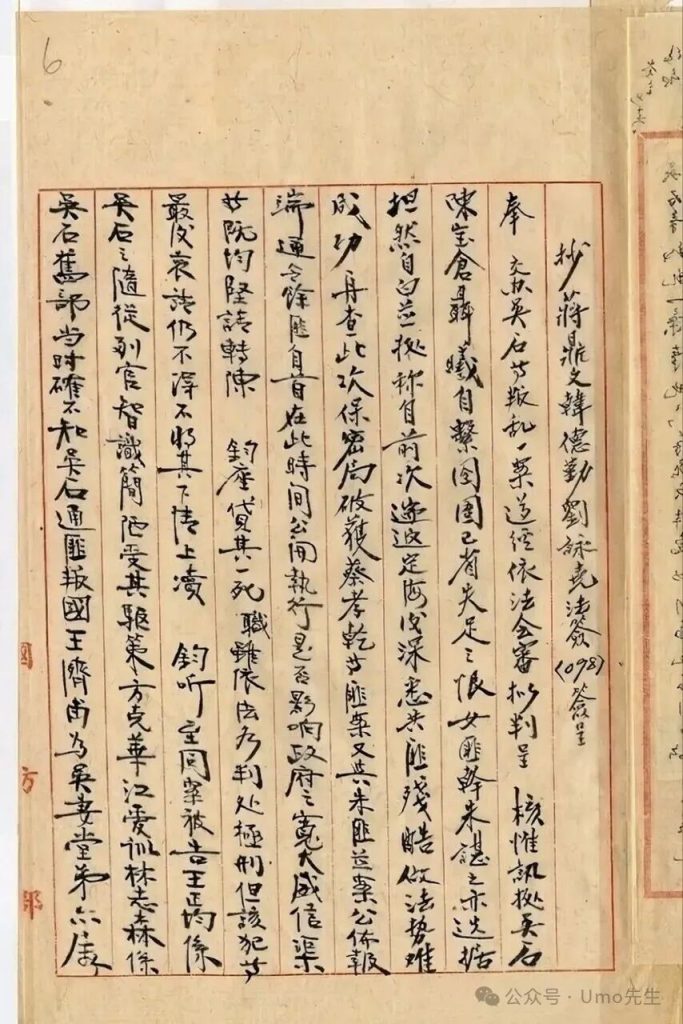 6
抄蔣鼎文韓德勤劉詠堯法簽(098)簽呈
奉 交辦吳石等叛亂一案遵經依法会審拟判呈 核惟訊據吳石
陳宝倉聶曦自繫囹圄已省失足之恨女匪幹朱諶之亦迭据
担然自白並拟称自前次遞返定海後深悉共匪殘酷做法势难
成功再查此次保密局破獲蔡孝乾等匪案又共朱匪並案公佈報
端通令餘匪自首在此時间公開執行是否影响政府之寬大威信渠
等既均坚請轉陳 鈞座貸其一死職雖依法为判处極刑但該犯等
最後哀請仍不得不将其下情上瀆 鈞听至同案被告王正均係
吳石之隨從列官智識簡陋受其驅策方克華江愛訓林志森係
吳石舊部当时確不知吳石通匪叛國王濟甫为吳妻堂弟亦屬
國方部
公众号·Umo先生